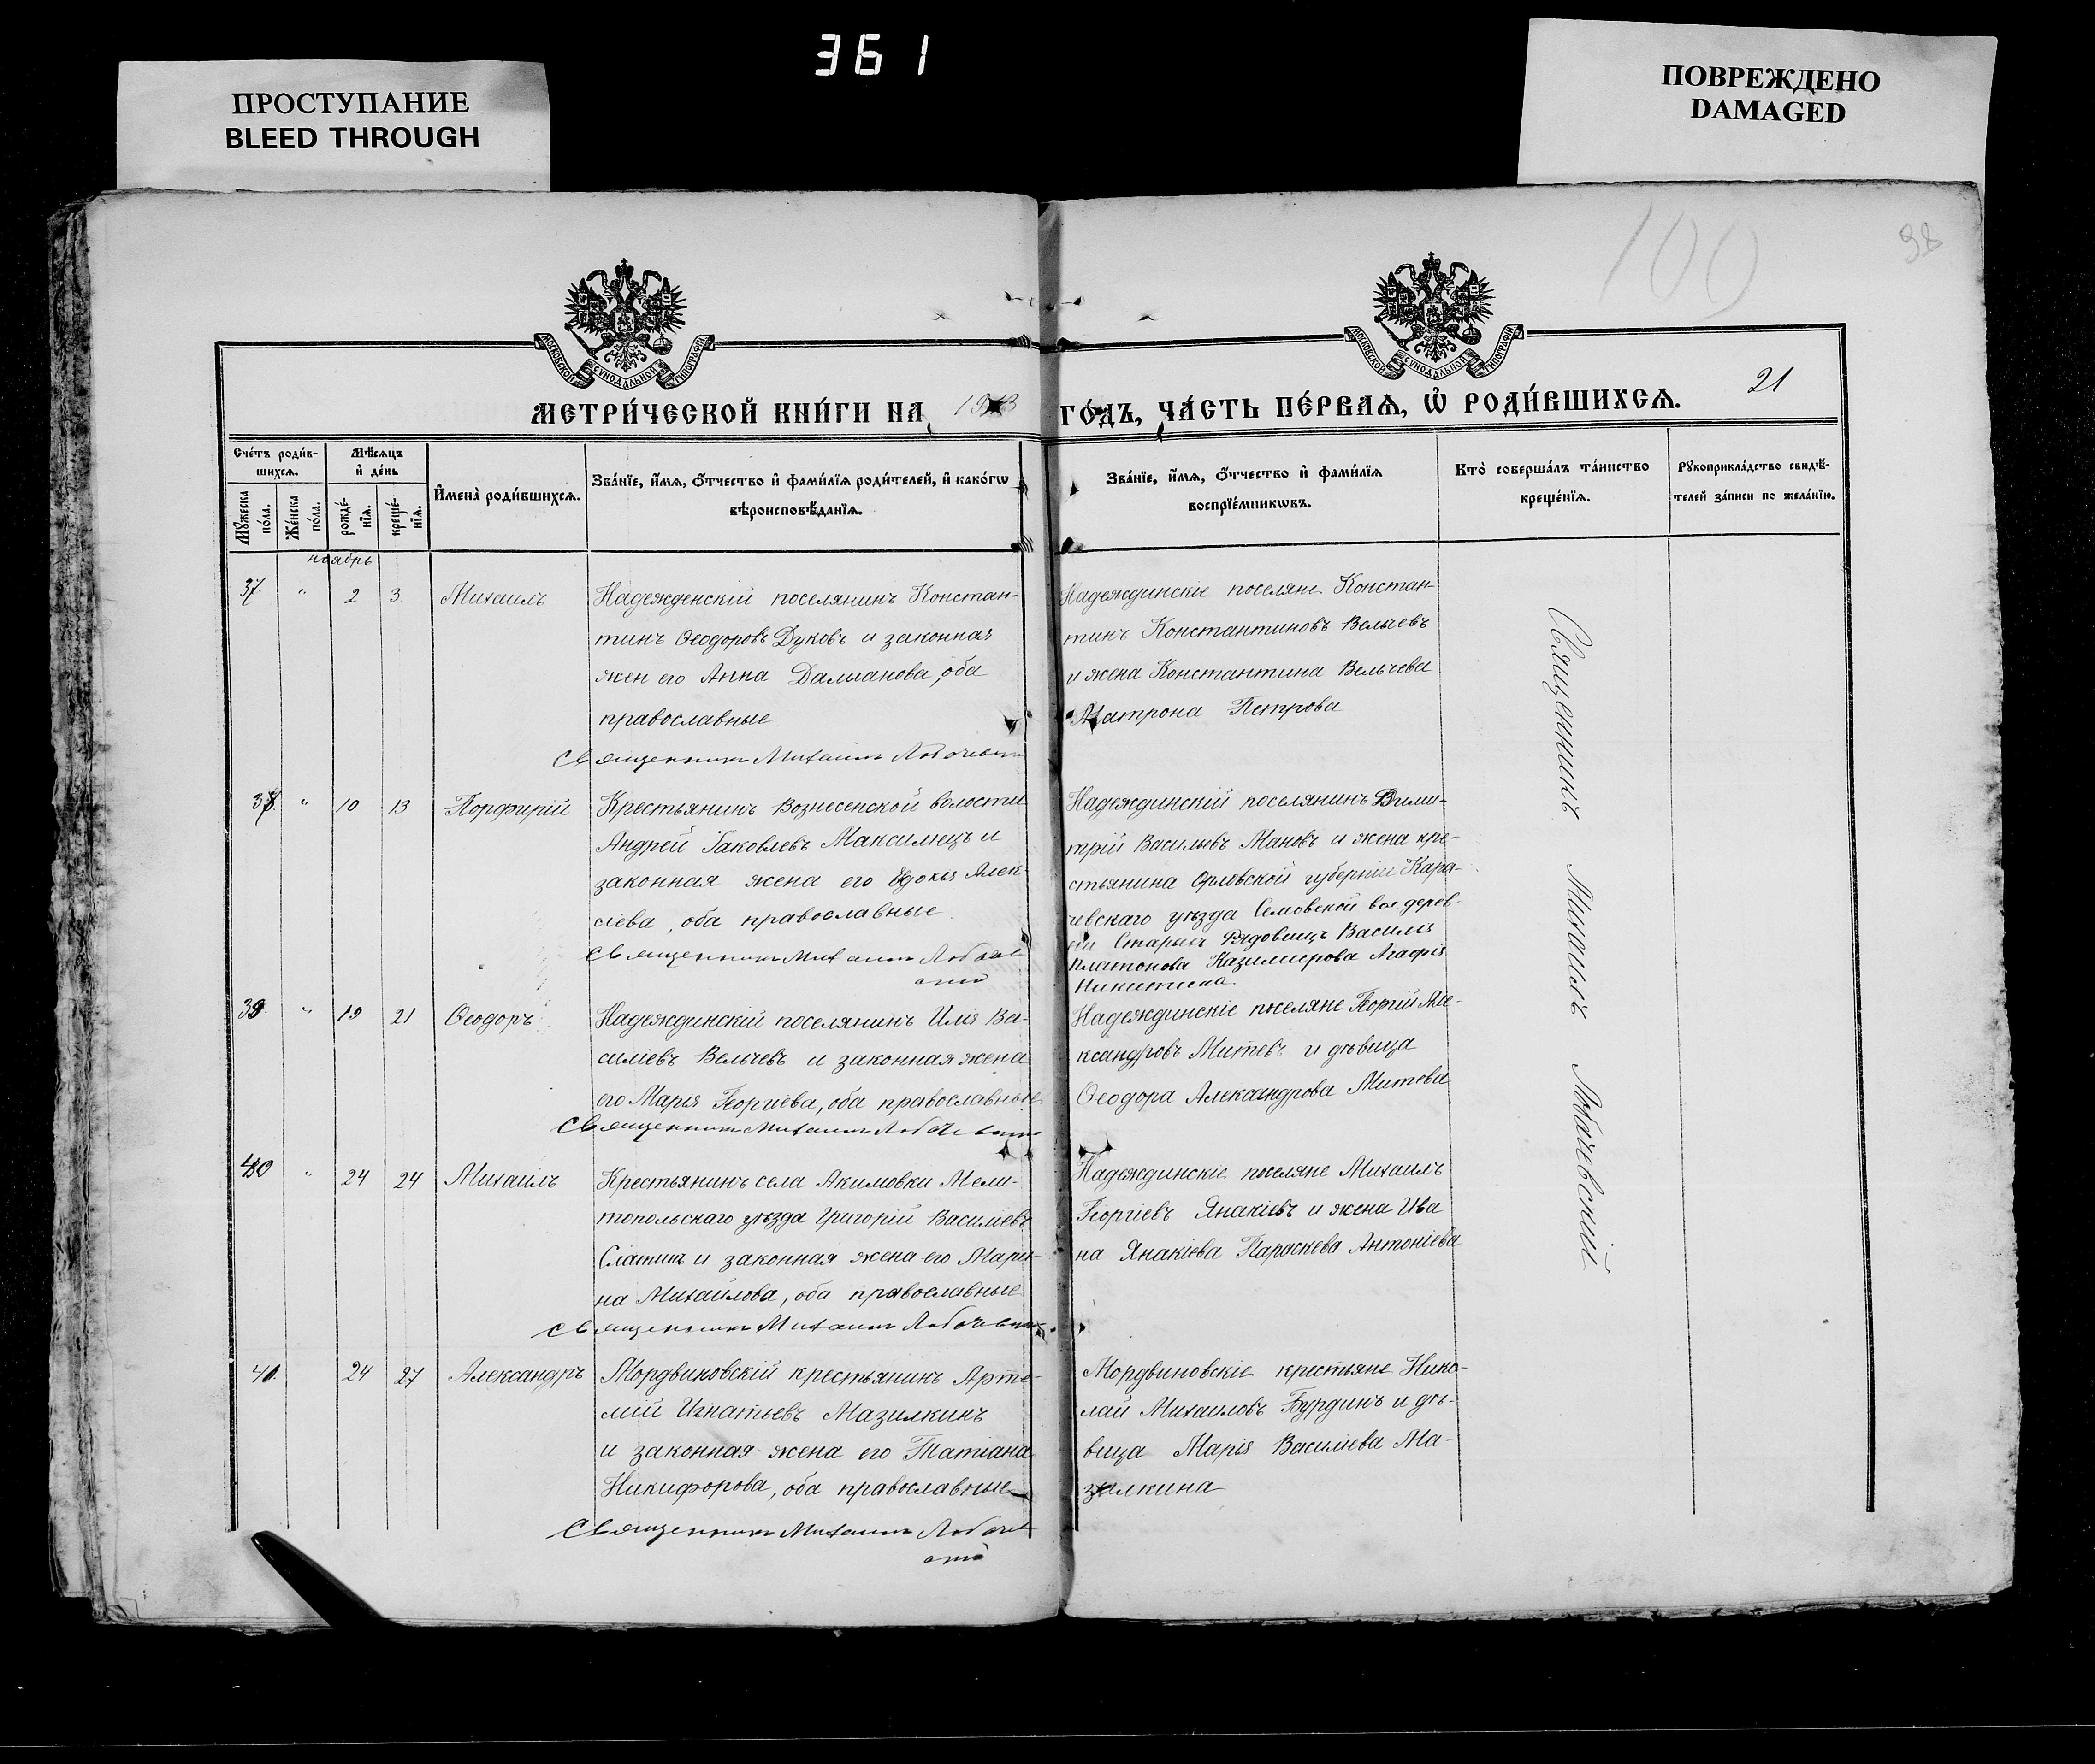 361
ПРОСТУПАНИЕ
BLEED THROUGH
ПОВРЕЖДЕНО
DAMAGED
100
98
МОСКОВСКОЙ СѴНОДАЛЬНОЙ ТИПОГРАФІИ
МОСКОВСКОЙ СѴНОДАЛЬНОЙ ТИПОГРАФІИ
21
МЕТРИ́ЧЕСКОЙ КНИ́ГИ НА ГО́ДЪ, ЧА́СТЬ ПЕ́РВАѦ, Ѡ҆ РОДИ́ВШИХСѦ.
Сче́тъ роди́в-
шихсѧ.
Мѣсѧцъ
и҆ де́нь
Мꙋ́жеска
по́ла.
Же́нска
по́ла.
рожде́-
нїѧ.
креще́-
нїѧ.
И҆мена̀ роди́вшихсѧ.
Зва́нїе, и҆́мѧ, о҆́тчество и҆ фами́лїѧ роди́телей, и҆ како́гѡ
вѣроисповѣ́данїѧ.
Зва́нїе, и҆́мѧ, о҆́тчество и҆ фами́лїѧ
воспрїе́мникѡвъ.
Кто̀ соверша́лъ та́инство
креще́нїѧ.
Рꙋкоприкла́дство свидѣ́-
телей за́писи по жела́нїю.
ноябрь
37 " 2 3 Михаилъ
Надежденскій поселянинъ Констан-
тинъ Ѳеодоровъ Дуковъ и законная
жен его Анна Далианова, оба
православные
Священникъ Михаилъ Любачевскій
Надеждинскіе поселяне Констан-
тинъ Константиновъ Вельчевъ
и жена Константина Вельчева
Матрона Петрова
38 " 10 13 Порфирій
Крестьянинъ Вознесенской волости
Андрей Іаковлевъ Максимецъ и
законная жена его Алек-
сіева, оба православные
Священникъ Михаилъ
Надеждинскій поселянинъ Дими-
трій Васильевъ Мановъ и жена кре-
стьянина Орловской губерніи Кара-
чевскаго уѣзда вол дерев-
ни Старыхъ Василія
Платонова Казимирова Агафія
Никитина
39 " 19 21 Ѳеодоръ
Надеждинскій поселянинъ Илія Ва-
силіевъ Вельчевъ и законная жена
его Марія Георгіева, оба православные
Священникъ Михаилъ Любачевскій
Надеждинскіе поселяне Георгій Але-
ксандровъ Митевъ и дѣвица
Ѳеодора Александрова Митева
40 " 24 24 Михаилъ
Крестьянинъ села Акимовки Мели-
топольскаго уѣзда Григорій Василіевъ
и законная жена его Мари-
на Михаилова, оба православные
Священникъ Михаилъ Любачевскій
Надеждинскіе поселяне Михаилъ
Георгіевъ Янакіевъ и жена Ива
на Янакіева Параскева Антоніева
41 24 27 Александръ
Мордвиновскій крестьянинъ Арте-
мій Игнатьевъ Мазилкинъ
и законная жена его Татіана
Никифорова, оба православные
Священникъ Михаилъ
Мордвиновскіе крестьяне Нико-
лай Михаиловъ Бурдинъ и дѣ-
вица Марія Василіева Ма-
зилкина
Священникъ Михаилъ Любачевскій